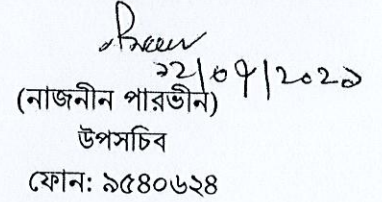 ১২/০৭/২০২১
(নাজনীন পারভীন)
উপসচিব
ফোন: ৯৫৪০৬২৪